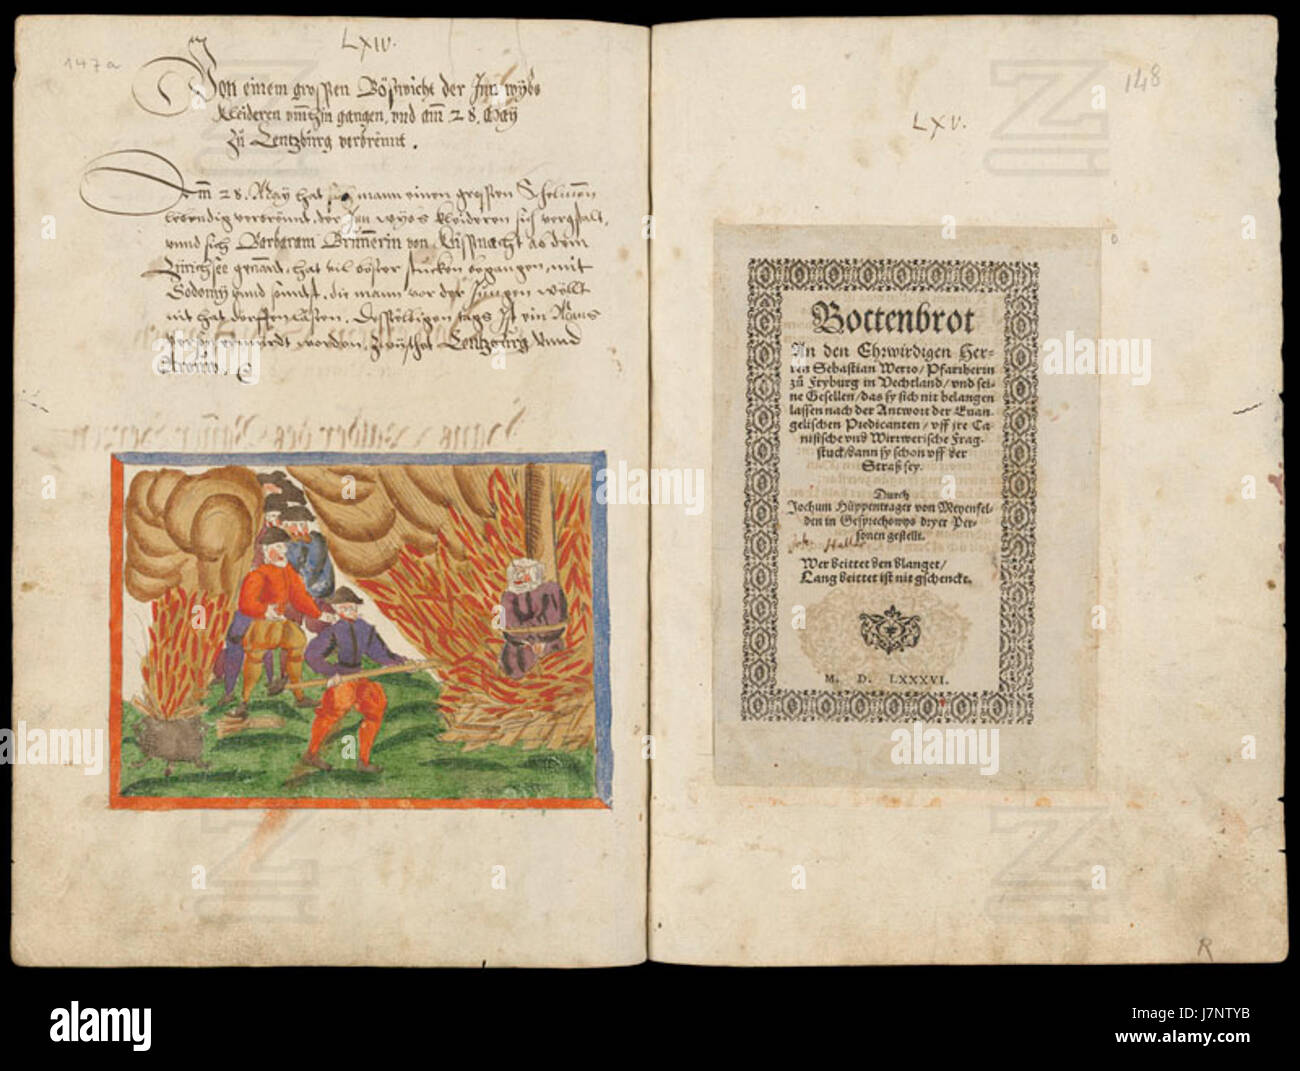 LXIV.
147a
Von einem grossen Bößwicht der Inn wÿbs
kleideren umbhin gangen, und am 28. Maÿ
zů Lentzburg verbrennt.
Am 28. Maÿ hat man einen grossen Schelmen
lebendig verbrënnt, der Inn wÿbs kleideren sich vergstalt,
unnd sich Barbaram Brunnerin von Küssnacht ab dem
Zürichsee genannt, hat vil böser stucken begangen, mit
Sodomÿ unnd sunst, die mann vor der Jungen wëllt
nit hat dorffen läsen. Desselbigen tags ist ein
worden, zwüschet Lentzburg unnd
148
LXV.
Bottenbrot
An den Ehrwirdigen Her-
ren Sebastian Werro / Pfarrherin
zů Fryburg in Vechtland / vnd sei-
ne Gesellen / das sy sich nit belangen
lassen nach der Antwort der Euan-
gelischen Predicanten / vff jre Ca-
nistische vnd Wirrwerische Frag-
stuck / dann sy schon vff der
Straß sey.
Durch
Jochum Hüppentrager von Meyenfel-
den in Gesprechswys dryer Per-
sonen gestellt.
Wer beittet den blanget /
Lang beittet ist nit gschenckt.
M. D. LXXXVI.
R
alamy
Image ID: J7NTYB
www.alamy.com